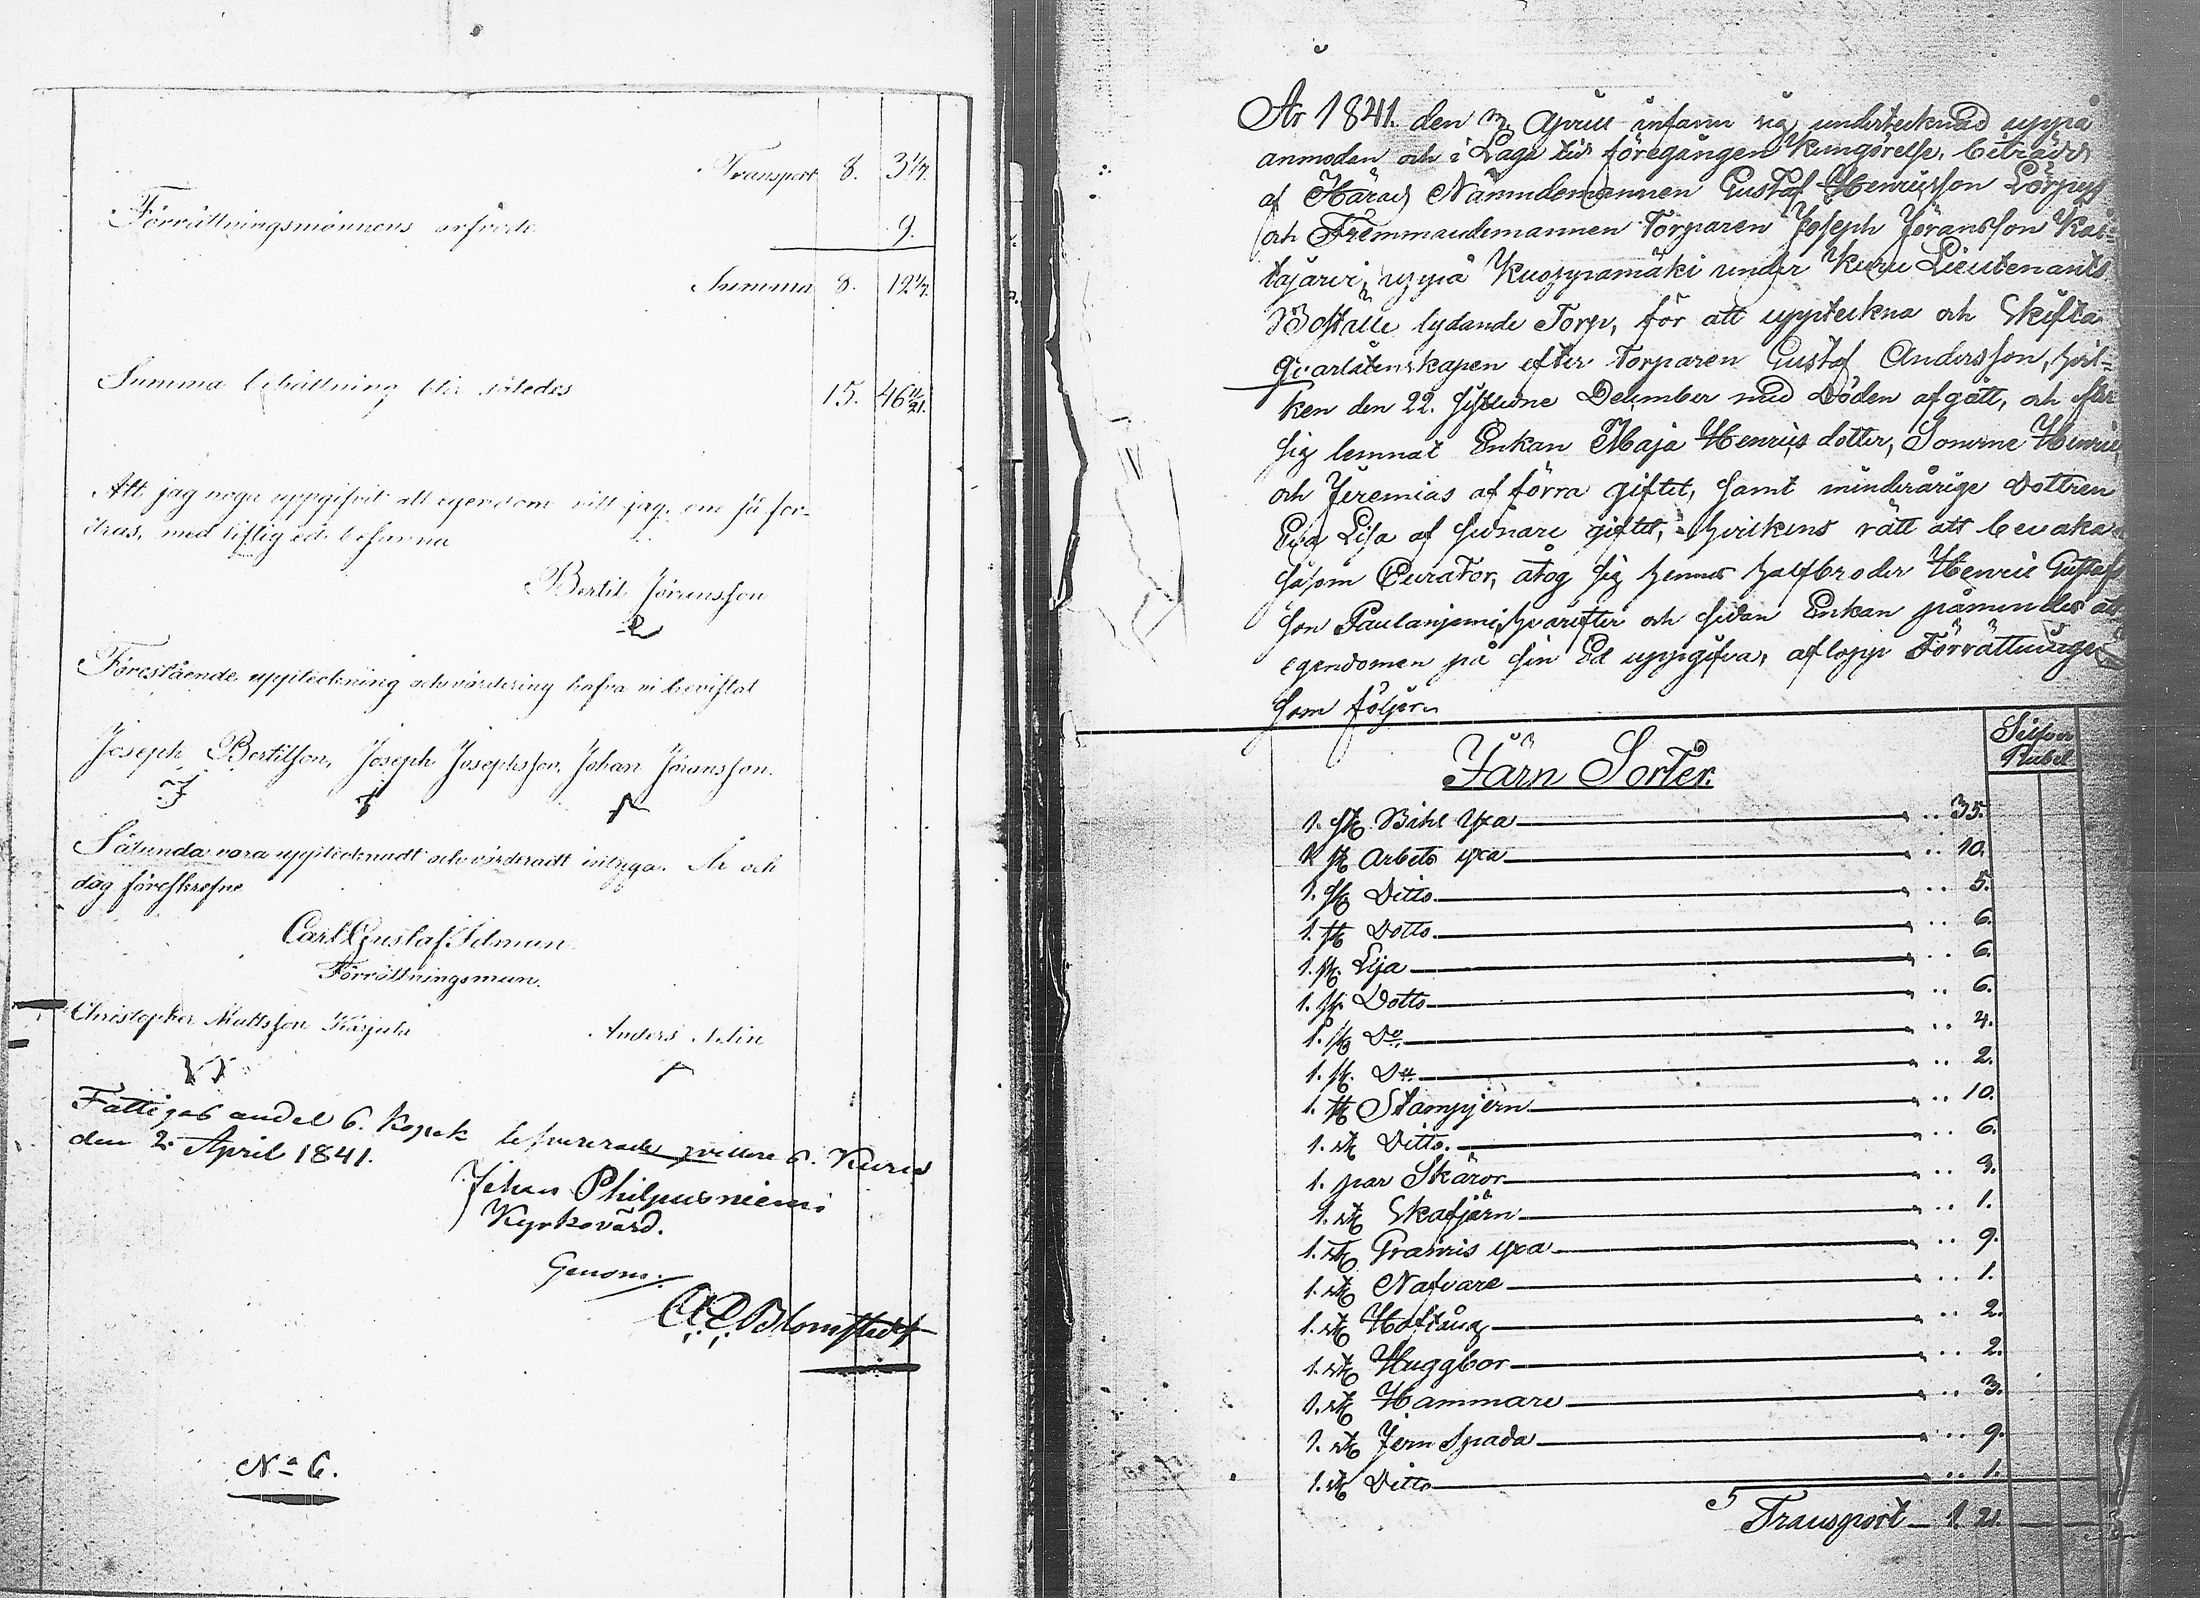 Transport 8. 3 1/7.
Förrättningsmännens arfvode 9.
Summa 8. 12 1/7.
Summa behållning blir således 15. 46 11/21.
Att jag noga uppgifvit all egendom vill jag, om så for-
dras, med liflig ed besanna
Bertil Jöransson
Förestående uppteckning och värdering hafva vi bevistat
Joseph Bertilsson, Joseph Josephsson, Johan Jöransson.
Sålunda vara upptecknadt och värderadt intyga. År och
dag föreskrefne
Carl Gustaf
Förrättningsman.
Christopher Mattsson Anders
Fattigas andel 6. Kopek Kuru
den 2. April 1841.
Johan Philpusniemi
Kyrkovärd.
Genom:
Blomstedt
No 6.
År 1841. den April infann sig undertecknad uppå
anmodan och i Laga tid föregången Kungörelse, biträdd
af Härads Nämndemannen Gustaf Henricsson Lörpys
och Fremmandemannen Torparen Joseph Jöransson Kai-
tajärvi, uppå Kuoppamäki under Kuru Lieutenants
Boställe lydande Torp, för att uppteckna och Skifta
qvarlåtenskapen efter Torparen Gustaf Andersson, hvil-
ken den 22. sistledne December med Döden afgått, och efter
sig lemnat Enkan Maja Henrics dotter, Sönerne Henric
och Jeremias af förra giftet, samt minderårige Dottren
Eva Lisa af sednare giftet, hvilkens rätt att bevaka
såsom Curator, åtog sig hennes halfbroder Henric Gustaf
son Paulaniemi, hvarefter och sedan Enkan påmindes att
egendomen på sin Ed uppgifva, aflopp Förrättningen
som följer.
Järn Sorter. Silfver Rubel
1. st. Bihl Yxa 35.
1 st. Arbets yxa 10.
1. st. Ditto 5.
1. st. Dotto 6.
1. st. Lija 6.
1. st. Dotto 6.
1. st. Do 4.
1. st. Do 2.
1. st. Stampjern 10.
1. st. Ditto. 6.
1. par Skäror 3.
1. st. Skafjärn 1.
1. st. yxa 9.
1. st. Nafvare 1.
1. st. Hoftång 2.
1. st. Huggbor 2.
1. st. Hammare 3.
1. st. Jern Spada 9.
1. st. Ditto 1.
Transport 1. 21.